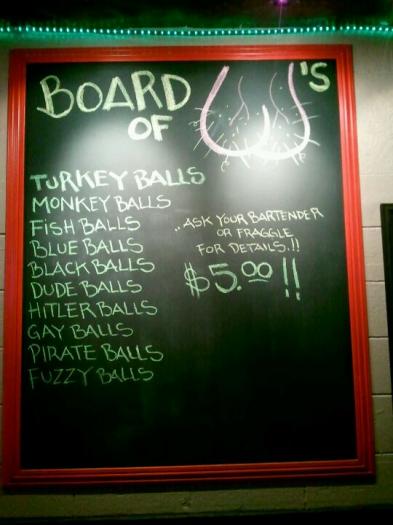 BOARD
OF 'S
TURKEY BALLS
MONKEY BALLS
FISH BALLS
BLUE BALLS
BLACK BALLS
DUDE BALLS
HITLER BALLS
GAY BALLS
PIRATE BALLS
FUZZY BALLS
..ASK YOUR BARTENDER
OR FRAGGLE
FOR DETAILS.!!
$5.00!!